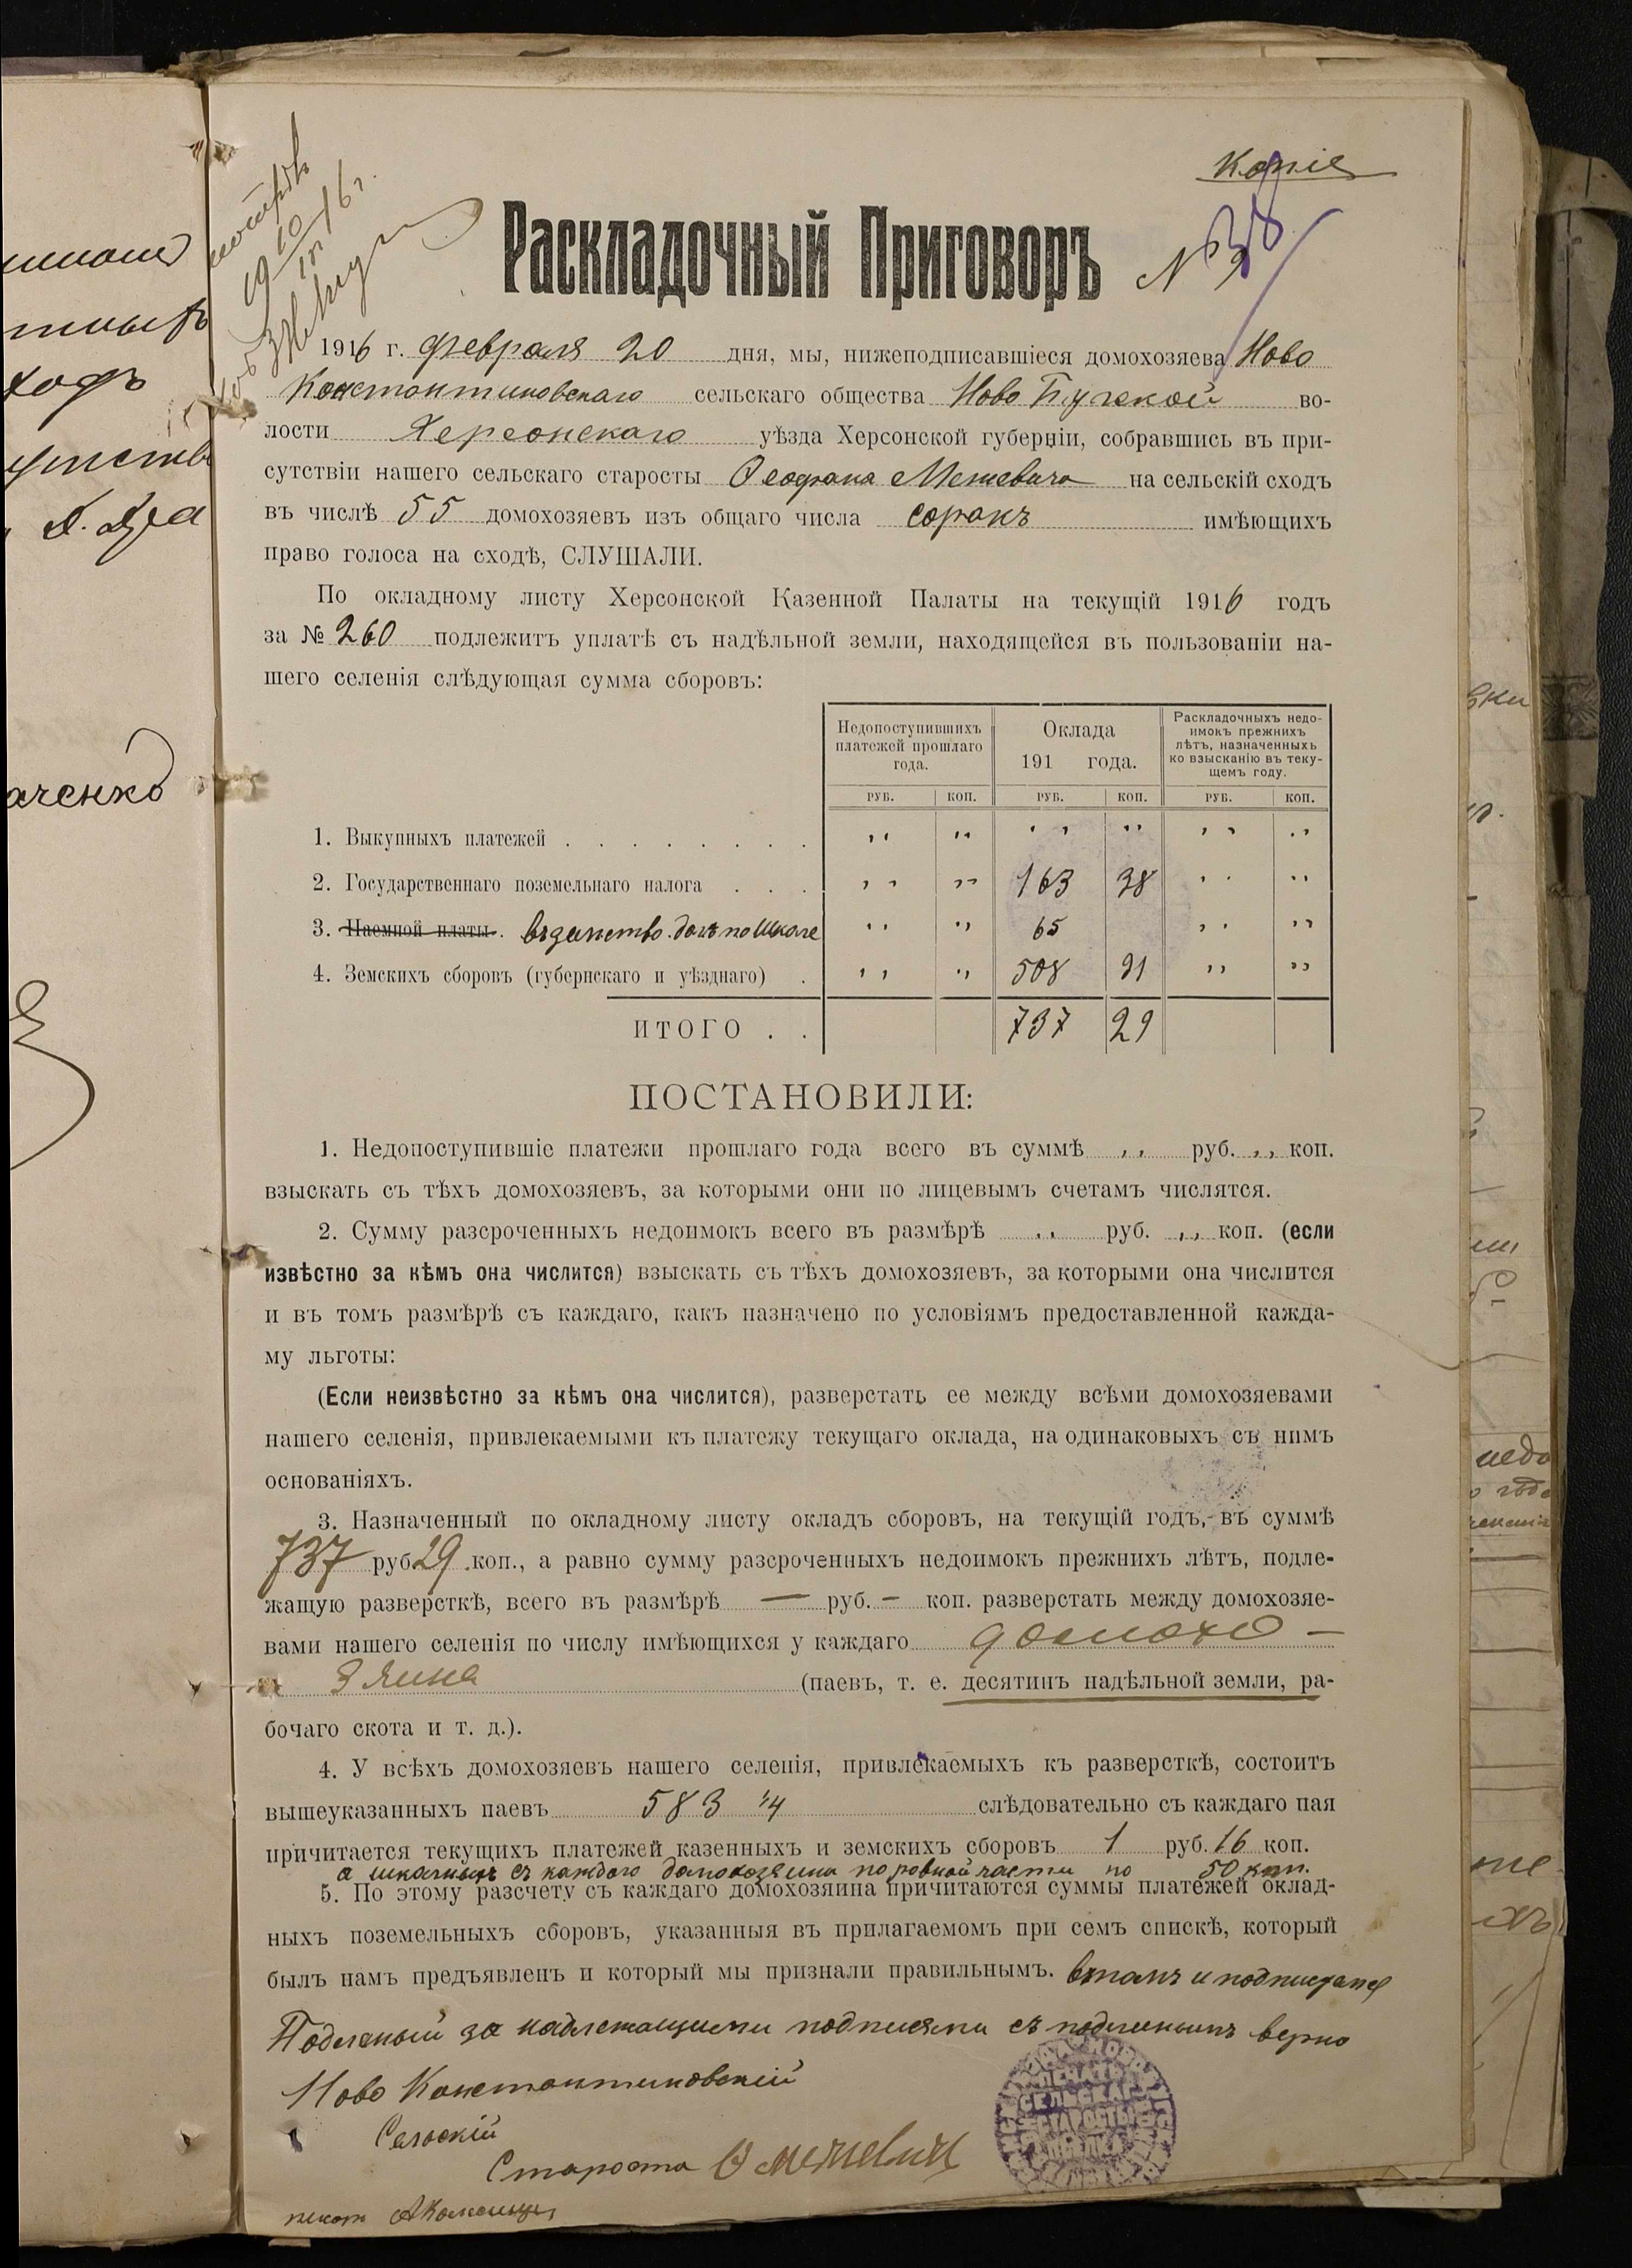 Копія
Раскладочный Приговоръ №
1916 г. Февраля 20 дня, мы, нижеподписавшіеся домохозяева Ново
Константиновскаго сельскаго общества Ново Бугской во-
лости Херсонскаго уѣзда Херсонской губерніи, собравшись въ при-
сутствіи нашего сельскаго старосты Ѳеофана Межевича на сельскій сходъ
въ числѣ 55 домохозяевъ изъ общаго числа сорокъ имѣющихъ
право голоса на сходѣ, СЛУШАЛИ.
По окладному листу Херсонской Казенной Палаты на текущій 1916 годъ
за № 260 подлежитъ уплатѣ съ надѣльной земли, находящейся въ пользованіи на-
шего селенія слѣдующая сумма сборовъ:
Недопоступившихъ платежей прошлаго года. Оклада 191 года. Раскладочныхъ недо-
имокъ прежнихъ
лѣтъ, назначенныхъ
ко взысканію въ теку-
щемъ году.
РУБ. КОП. РУБ. КОП. РУБ. КОП.
1. Выкупныхъ платежей . . . . . . . . ,, ,, ,, ,, ,, ,,
2. Государственнаго поземельнаго налога . . . ,, ,, 163 38 ,, ,,
3. Наемной платы. по школе ,, ,, 65 ,, ,,
4. Земскихъ сборовъ (губернскаго и уѣзднаго) . ,, ,, 508 91 ,, ,,
ИТОГО . . 737 29
ПОСТАНОВИЛИ:
1. Недопоступившіе платежи прошлаго года всего въ суммѣ ,, руб. ,, коп.
взыскать съ тѣхъ домохозяевъ, за которыми они по лицевымъ счетамъ числятся.
2. Сумму разсроченныхъ недоимокъ всего въ размѣрѣ ,, руб. ,, коп. (если
извѣстно за кѣмъ она числится) взыскать съ тѣхъ домохозяевъ, за которыми она числится
и въ томъ размѣрѣ съ каждаго, какъ назначено по условіямъ предоставленной кажда-
му льготы:
(Если неизвѣстно за кѣмъ она числится), разверстать ее между всѣми домохозяевами
нашего селенія, привлекаемыми къ платежу текущаго оклада, на одинаковыхъ съ нимъ
основаніяхъ.
3. Назначенный по окладному листу окладъ сборовъ, на текущій годъ, въ суммѣ
737 руб. 29 коп., а равно сумму разсроченныхъ недоимокъ прежнихъ лѣтъ, подле-
жащую разверсткѣ, всего въ размѣрѣ — руб. — коп. разверстать между домохозяе-
вами нашего селенія по числу имѣющихся у каждаго домохо-
зяина (паевъ, т. е. десятинъ надѣльной земли, ра-
бочаго скота и т. д.).
4. У всѣхъ домохозяевъ нашего селенія, привлекаемыхъ къ разверсткѣ, состоитъ
вышеуказанныхъ паевъ 583 1/4 слѣдовательно съ каждаго пая
причитается текущихъ платежей казенныхъ и земскихъ сборовъ 1 руб. 16 коп.
а съ каждого домохозяина по ровной части по 50 коп.
5. По этому разсчету съ каждаго домохозяина причитаются суммы платежей оклад-
ныхъ поземельныхъ сборовъ, указанныя въ прилагаемомъ при семъ спискѣ, который
былъ намъ предъявленъ и который мы признали правильнымъ. втомъ и подписуемся
Подленый за надлежащими подписями съ подленымъ верно
Ново Константиновскій
Сельскій
Староста Ѳ Межевичъ